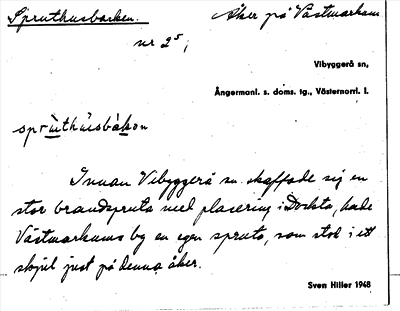 Spruthusbacken. Åker på Västmarkum
nr 2⁵;
Vibyggerå sn,
Ångermanl. s. doms. tg., Västernorrl. l.
sprùthùsbàkon
Innan Vibyggerå sn. skaffade sig en
stor brandspruta med placering i Docksta, hade
Västmarkums by en egen spruta, som stod i ett
skjul just på denna åker.
Sven Hiller 1948